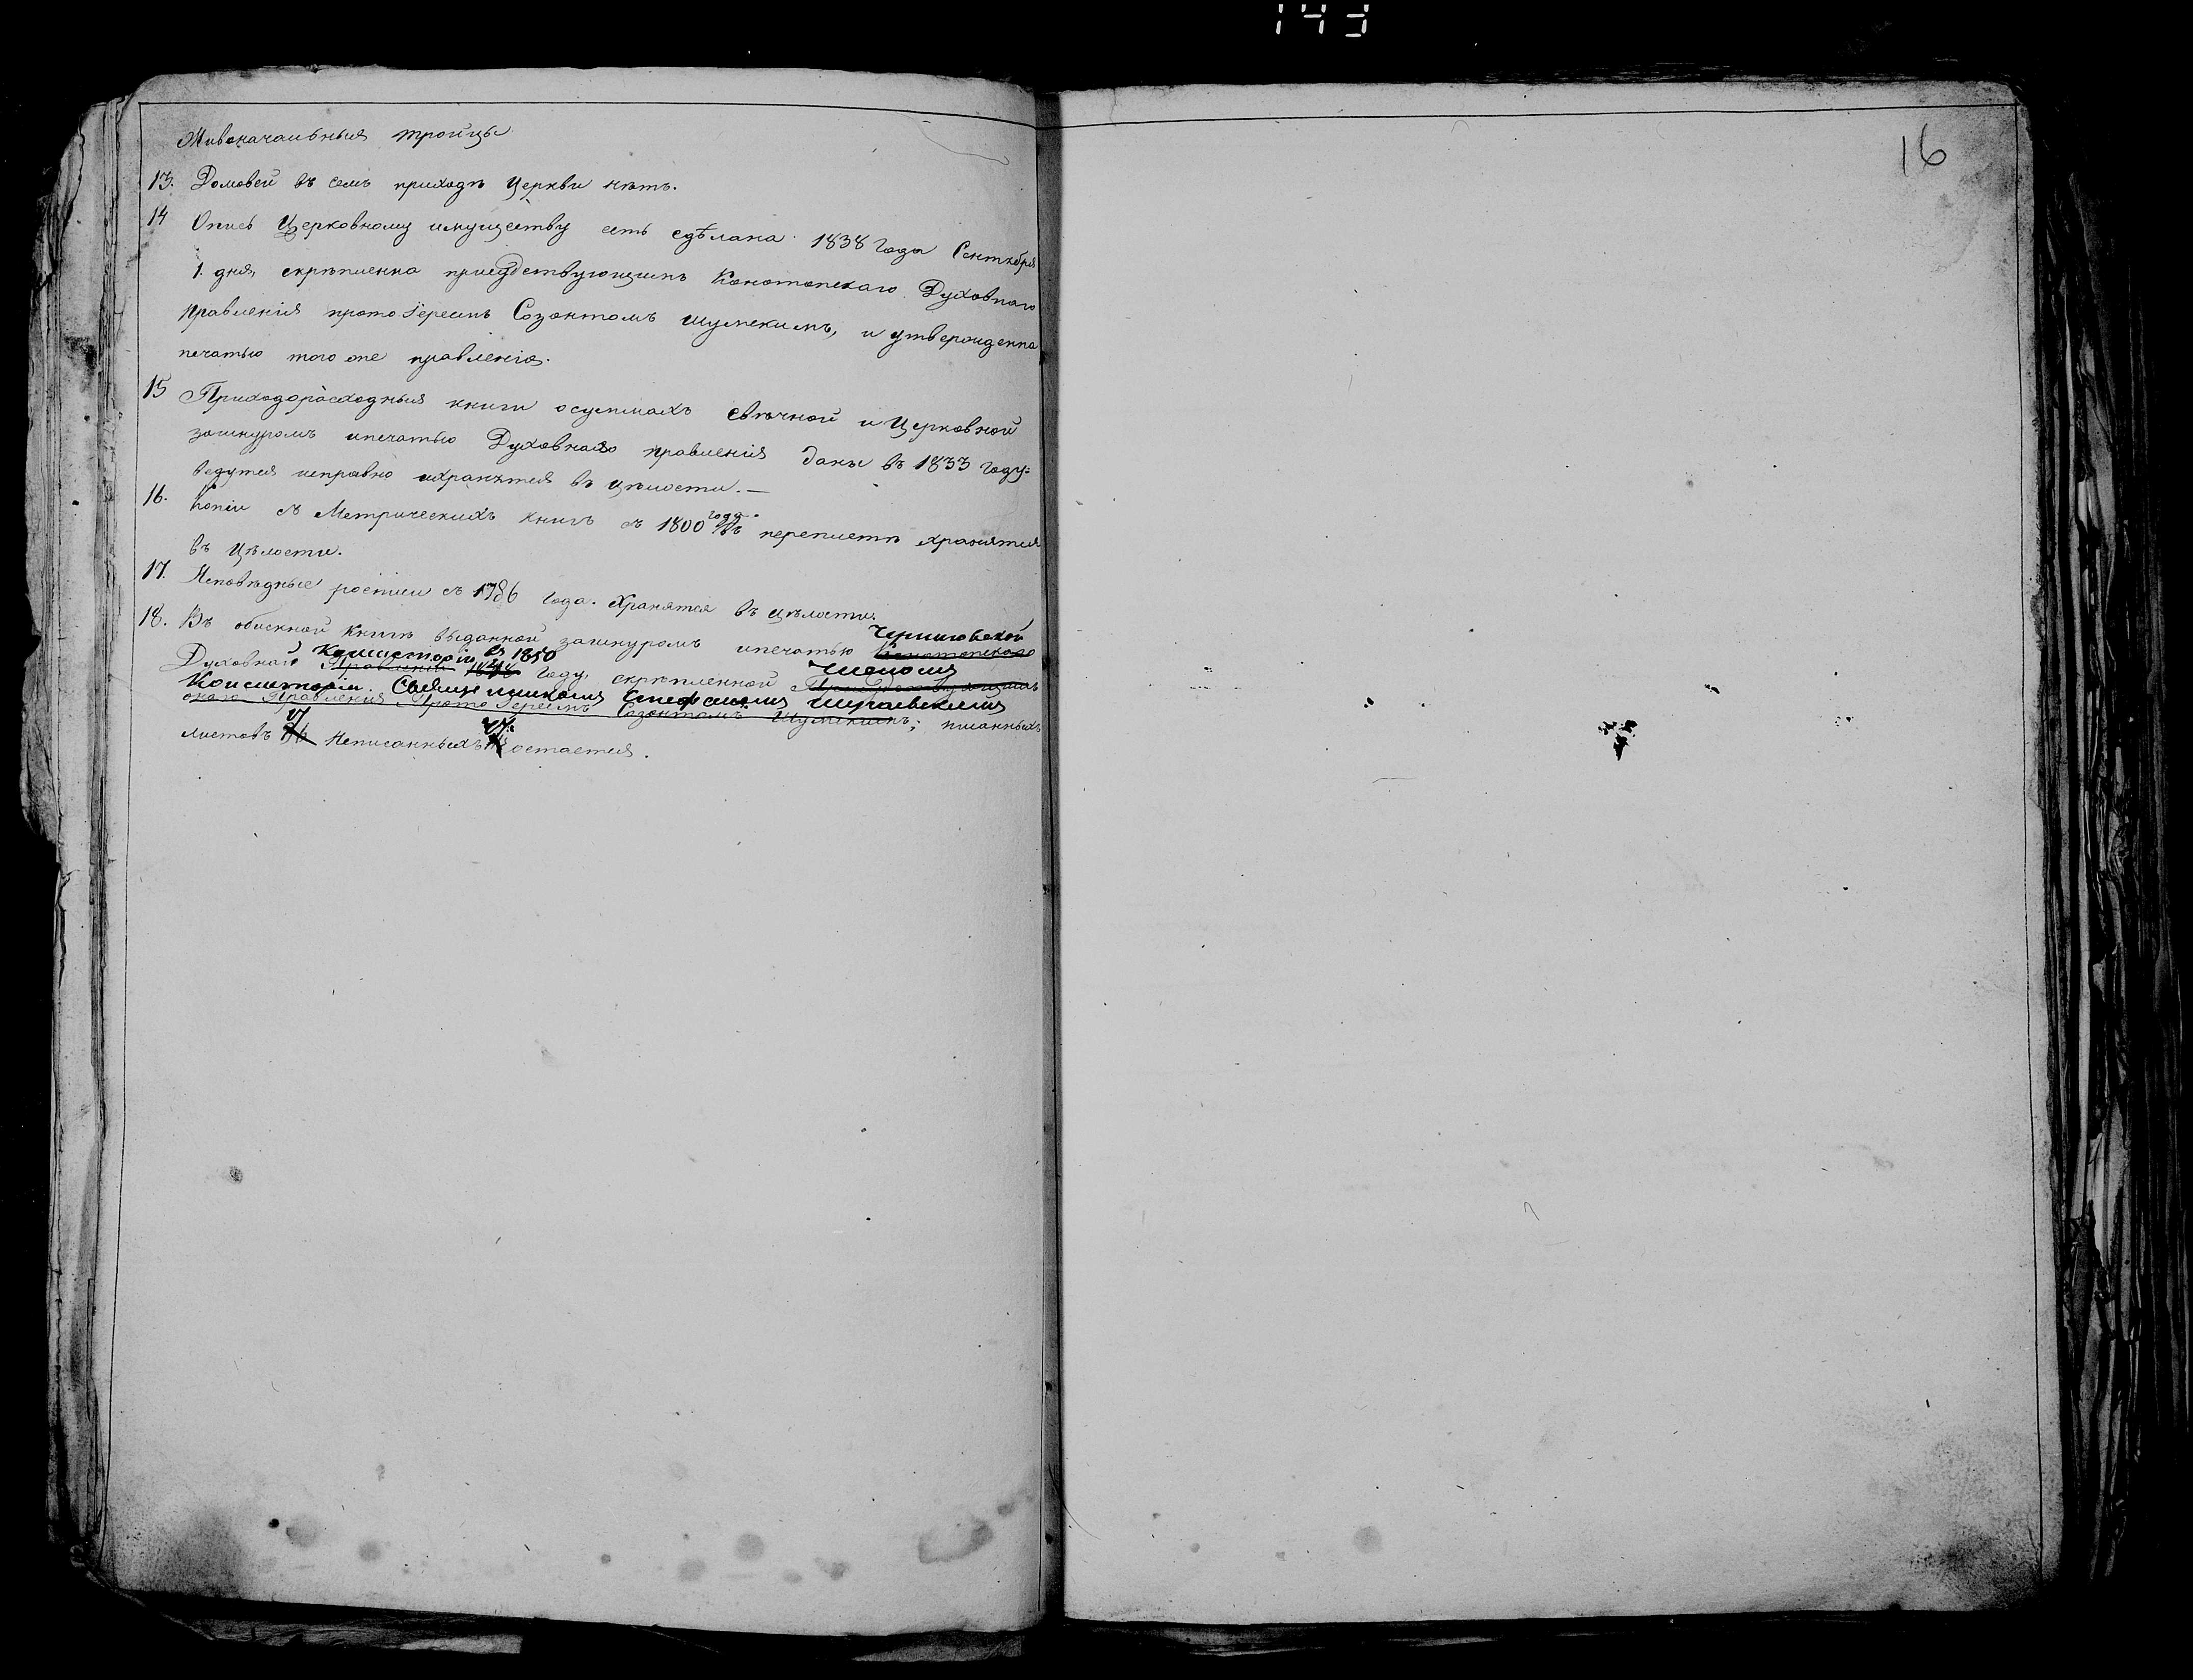 143
16
Живоначальныя Тройцы
13. Домовой въ семъ приходѣ Церкви нѣтъ.
14 Опись Церковному имуществу есть сдѣлана 1838 Года Сентября
1. дня, скрѣпленна присудствующимъ Конотопскаго Духовнаго
Правленія протоіереемъ Созонтомъ Шумскимъ, и утвержденна
печатью того же правленія.
15 Приходорасходныя книги о суммахъ свѣчной и Церковной
зашнуромъ ипечатью Духовнаго правленія даны въ 1833 году:
ведутся исправно ихранятся въ цѣлости. —
16. Копіи съ Метрическихъ книгъ съ 1800 года въ переплетѣ хранятся
въ Цѣлости.
17. Исповѣдные росписи съ 1786 года. Хранятся въ цѣлости.
18. Въ обыскной Книгѣ выданной зашнуромъ ипечатью Конотопскаго Черниговской
Духовнаго Правленія Консисторіи въ 1850 году, скрѣпленной Присудствующимъ Членомъ
Консисторіи Священникомъ Стефаномъ
онаго Правленія Протоіереемъ Созонтомъ Шумскимъ; писанныхъ
листовъ Неписанныхъ остается.